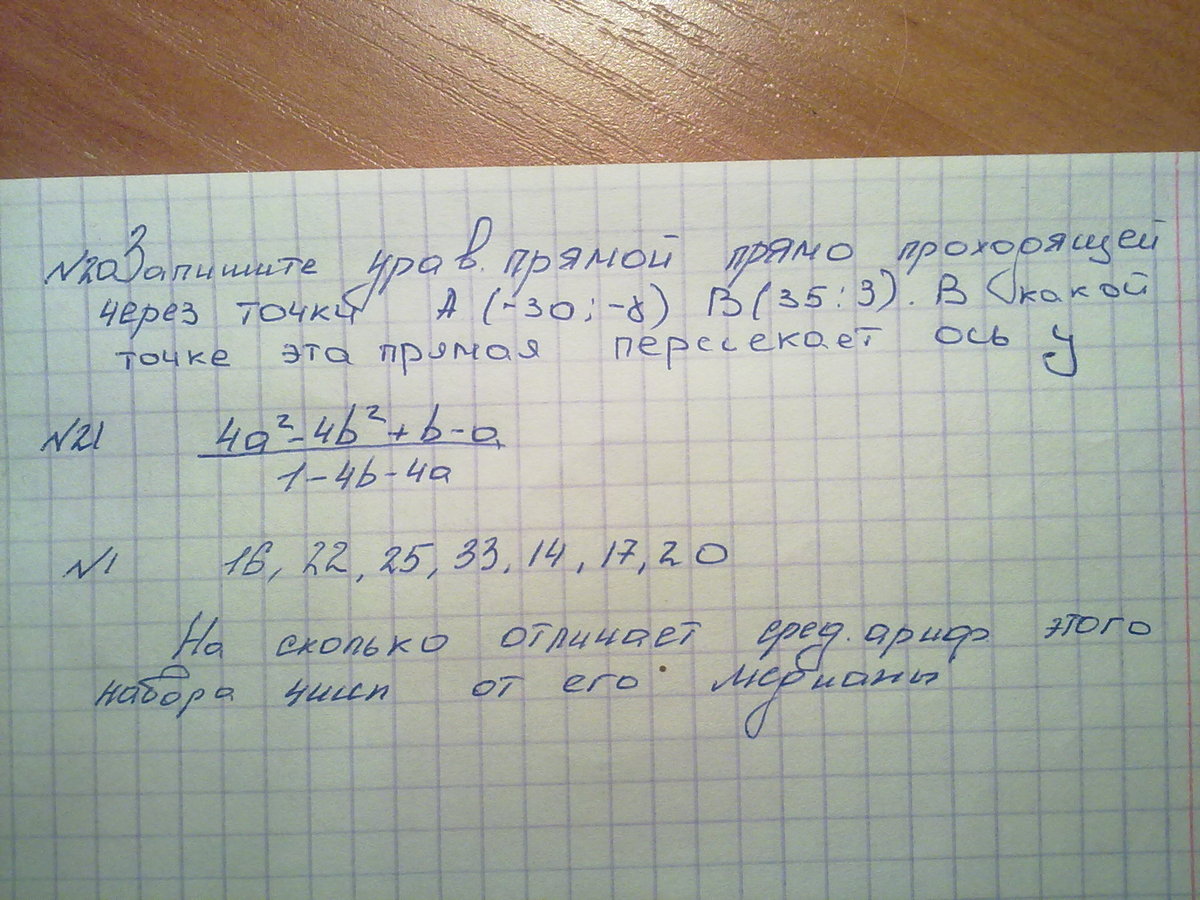 N20 Запишите урав. прямой прямо проходящей
через точки A (-30; -8) B (35 : 3). В какой
точке эта прямая перссекает ось y
N21 4a²-4b²+b-a
1-4b-4a
N1 16, 22, 25, 33, 14, 17, 20
На сколько отличает сред. ариф этого
набора чисп от его медианы